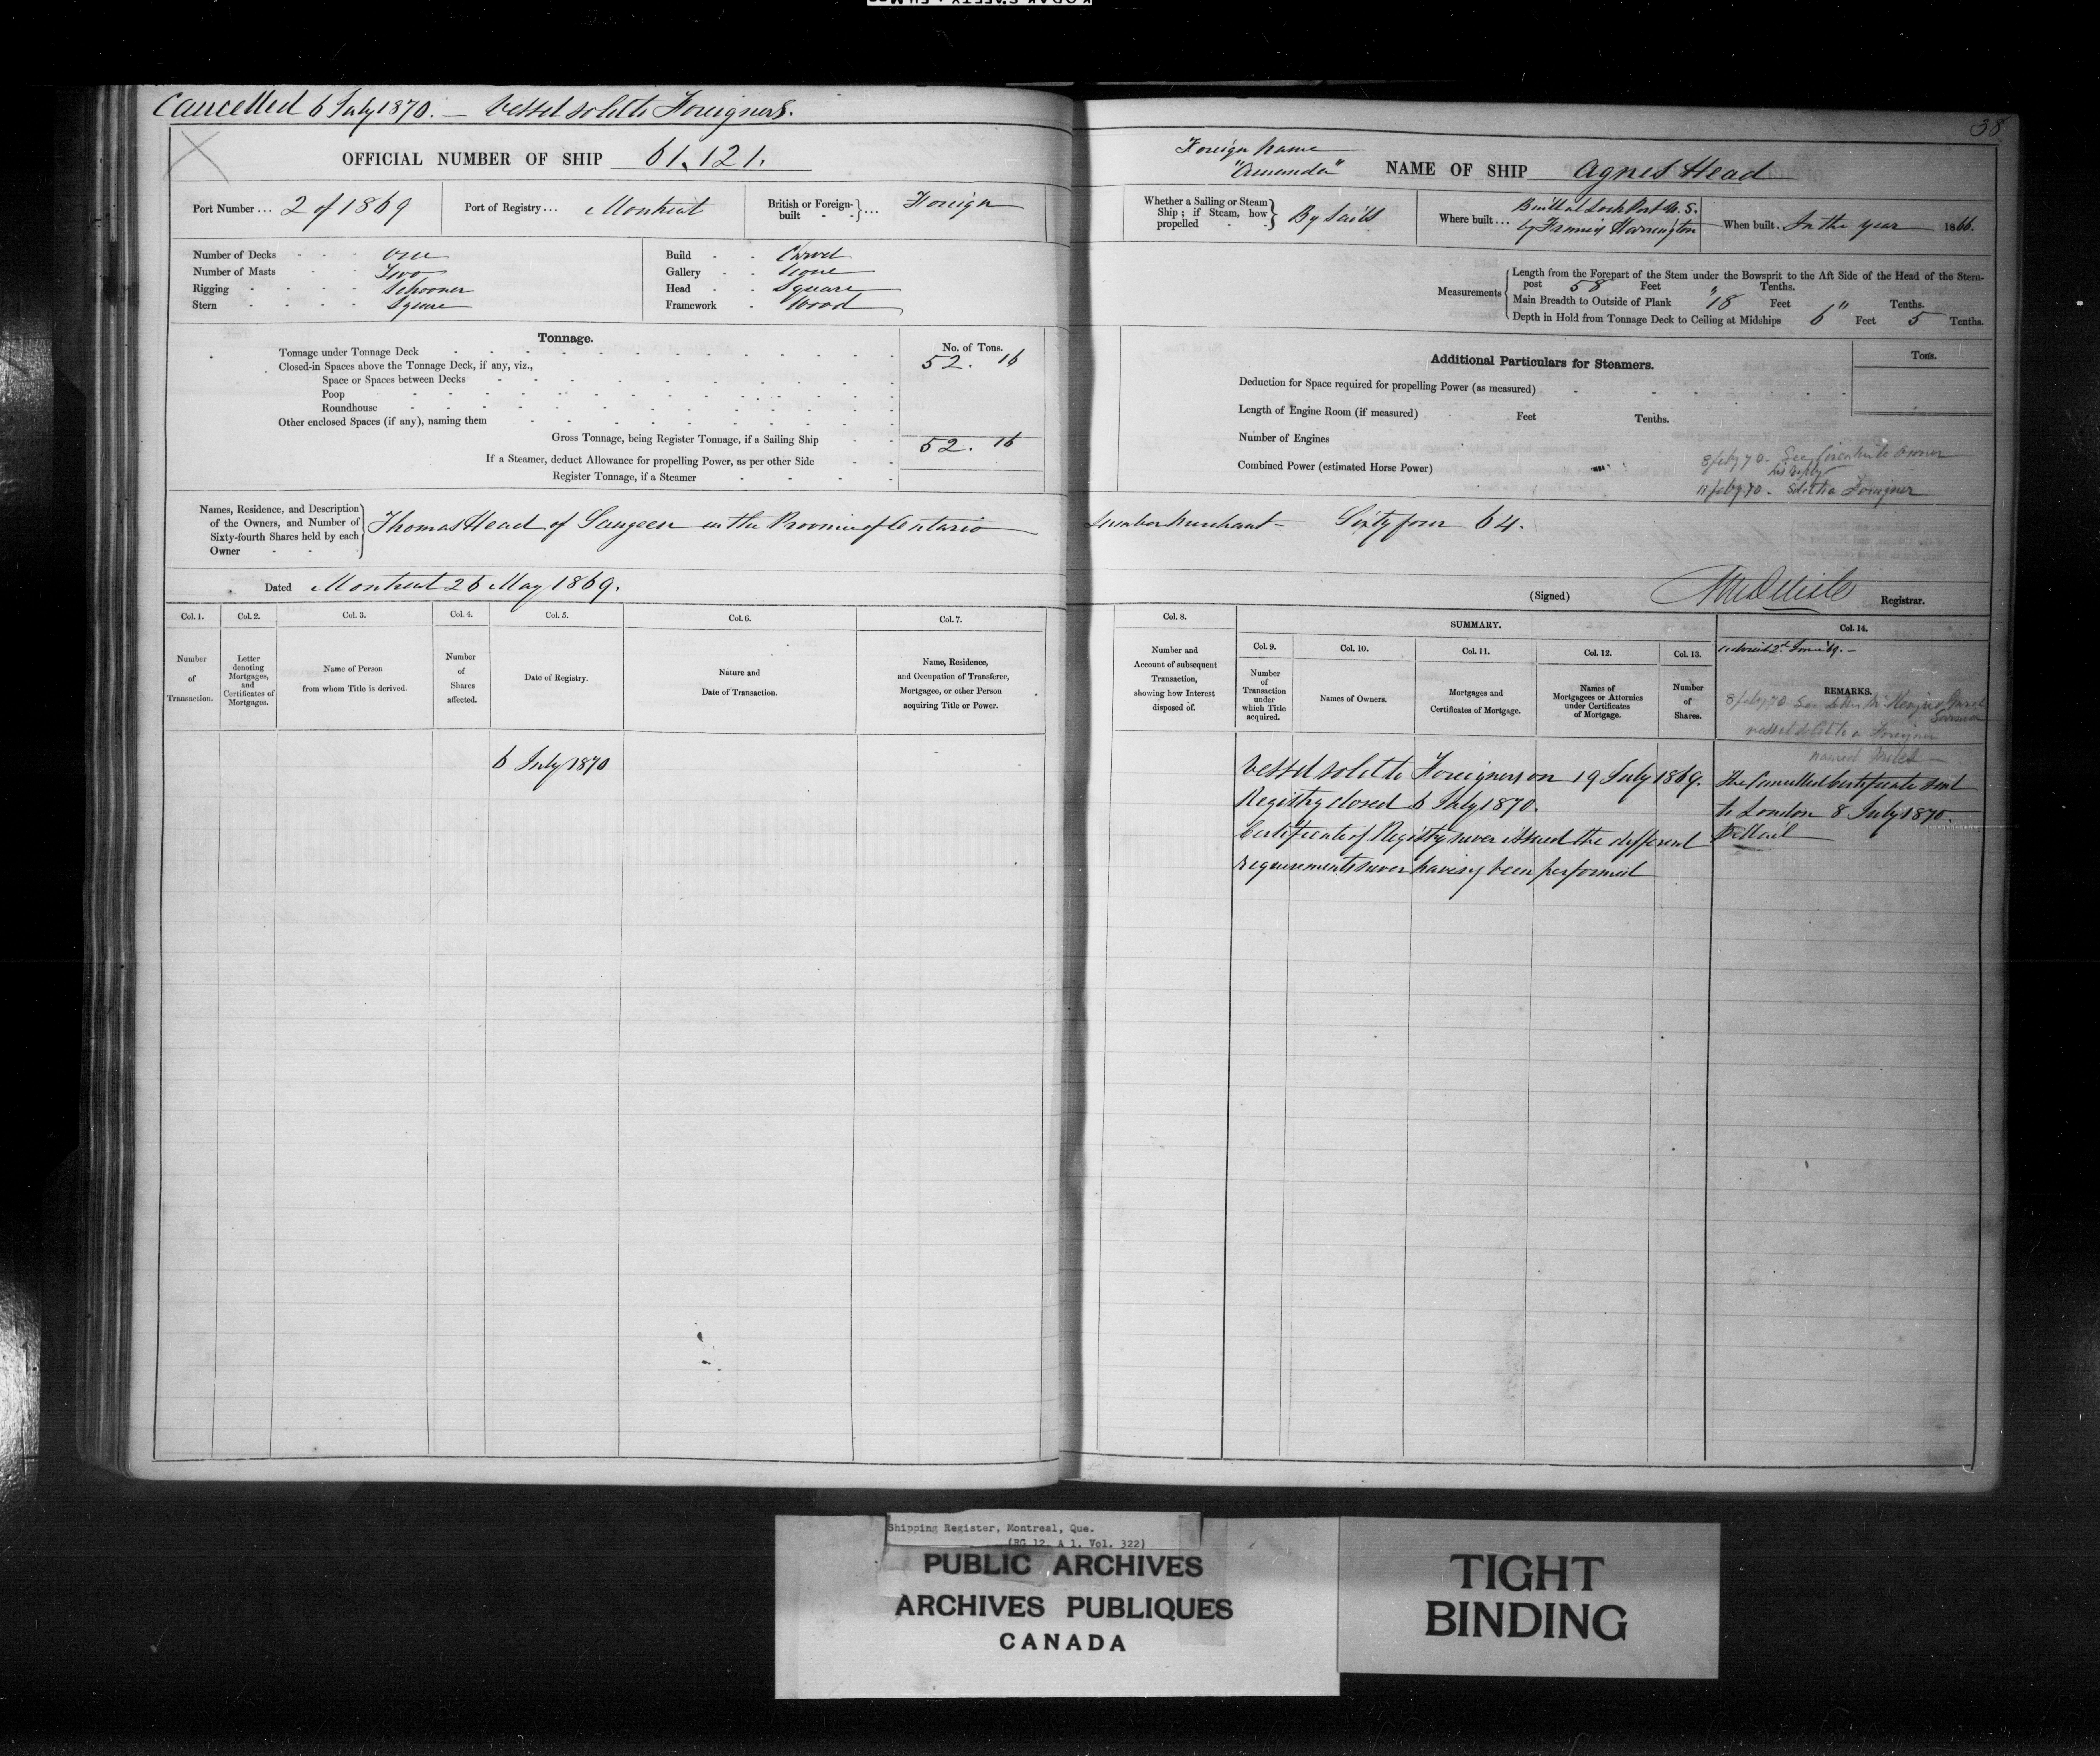 Cancelled 6 July 1870. — Vessel sold to Foreigners.
OFFICIAL NUMBER OF SHIP 61,121.
Port Number ... 2 of 1869
Port of Registry ... Montreal
British or Foreign-built ... Foreign
Number of Decks one
Number of Masts Two
Rigging Schooner
Stern Square
Build Carvel
Gallery None
Head Square
Framework Wood
Tonnage.
No. of Tons.
Tonnage under Tonnage Deck 52. 16
Closed-in Spaces above the Tonnage Deck, if any, viz.,
Space or Spaces between Decks
Poop
Roundhouse
Other enclosed Spaces (if any), naming them
Gross Tonnage, being Register Tonnage, if a Sailing Ship 52. 16
If a Steamer, deduct Allowance for propelling Power, as per other Side
Register Tonnage, if a Steamer
Names, Residence, and Description
of the Owners, and Number of
Sixty-fourth Shares held by each
Owner
Thomas Head of Saugeen in the Province of Ontario
Dated Montreal 26 May 1869.
Col. 1.
Number
of
Transaction.
Col. 2.
Letter
denoting
Mortgages,
and
Certificates of
Mortgages.
Col. 3.
Name of Person
from whom Title is derived.
Col. 4.
Number
of
Shares
affected.
Col. 5.
Date of Registry.
Col. 6.
Nature and
Date of Transaction.
Col. 7.
Name, Residence,
and Occupation of Transferee,
Mortgagee, or other Person
acquiring Title or Power.
6 July 1870
38
Foreign Name
"Amanda"
NAME OF SHIP Agnes Head
Whether a Sailing or Steam
Ship; if Steam, how
propelled
By Sails
Where built ... Built at Lock Port U.S.
by Francis Harrington
When built. In the year 1866.
Measurements
Length from the Forepart of the Stem under the Bowsprit to the Aft Side of the Head of the Stern-
post 58 Feet " Tenths.
Main Breadth to Outside of Plank 18 Feet " Tenths.
Depth in Hold from Tonnage Deck to Ceiling at Midships 6 Feet 5 Tenths.
Additional Particulars for Steamers.
Tons.
Deduction for Space required for propelling Power (as measured)
Length of Engine Room (if measured) Feet Tenths.
Number of Engines
Combined Power (estimated Horse Power)
8 feby 70. See Circular to owner
his reply
11 feby 70. Sold to a Foreigner
Lumber Merchant — Sixty four 64.
(Signed) Registrar.
Col. 8.
Number and
Account of subsequent
Transaction,
showing how Interest
disposed of.
SUMMARY.
Col. 9.
Number
of
Transaction
under
which Title
acquired.
Col. 10.
Names of Owners.
Col. 11.
Mortgages and
Certificates of Mortgage.
Col. 12.
Names of
Mortgagees or Attornies
under Certificates
of Mortgage.
Col. 13.
Number
of
Shares.
Col. 14.
REMARKS.
8 feby 70 See letter
vessel sold to a Foreigner
named Miles
Vessel sold to Foreigners on 19 July 1869.
Registry closed 6 July 1870.
Certificate of Registry never issued the different
requirements never having been performed
The Cancelled Certificate sent
to London 8 July 1870.
Shipping Register, Montreal, Que.
(RG 12, A 1, Vol. 322)
PUBLIC ARCHIVES
ARCHIVES PUBLIQUES
CANADA
TIGHT
BINDING